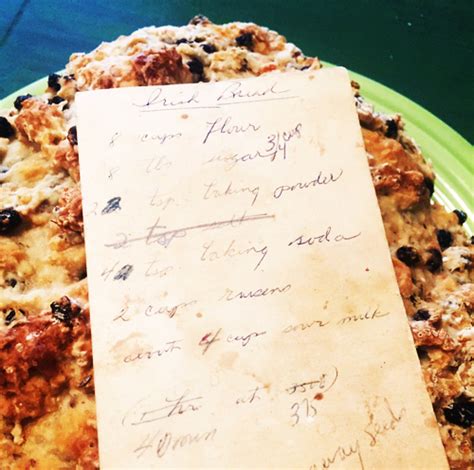 Irish Bread
8 cups flour
8 tbs sugar 3/4 cup
2 tsp. baking powder
2 tsp salt
4 tsp. baking soda
2 cups raisens
about 4 cups sour milk
(1 hr. at 350)
375
4 Down
away Seeds